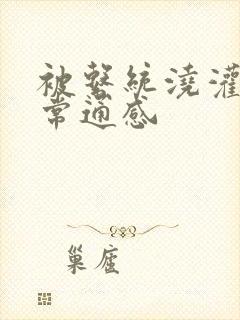 被系统浇灌
常通感
巢座